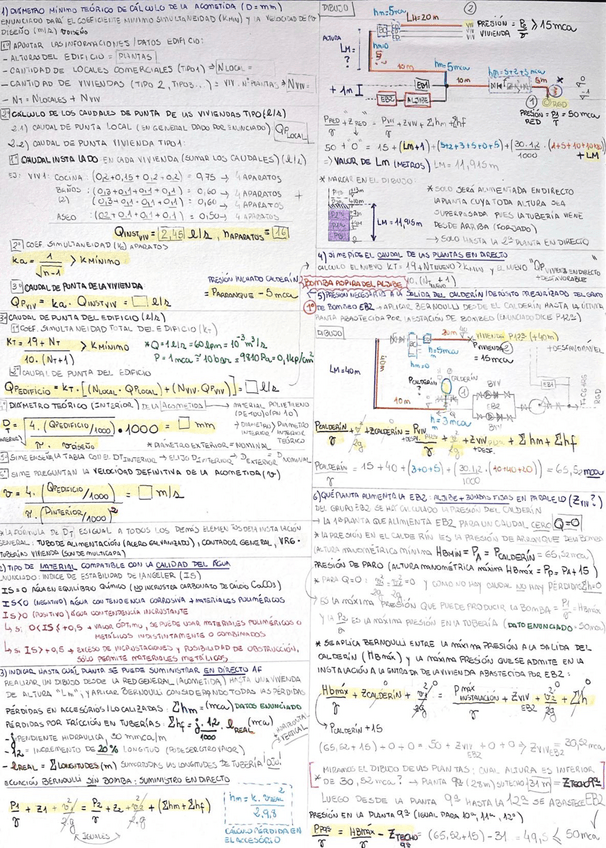 1) DIÁMETRO MÍNIMO TEÓRICO DE CÁLCULO DE LA ACOMETIDA (D = mm)
ENUNCIADO DARÁ EL COEFICIENTE MÍNIMO SIMULTANEIDAD (KMIN) Y LA VELOCIDAD DE
DISEÑO (m/s) VDISEÑO
1º APUNTAR LAS INFORMACIONES / DATOS EDIFICIO:
- ALTURAS DEL EDIFICIO = PLANTAS
- CANTIDAD DE LOCALES COMERCIALES (TIPO 1) = NLOCAL =
- CANTIDAD DE VIVIENDAS (TIPO 2, TIPO3...) = VIV. Nº PLANTAS = NVIV =
- NT = NLOCALES + NVIV
2º CÁLCULO DE LOS CAUDALES DE PUNTA DE LAS VIVIENDAS TIPO (l/s)
2.1) CAUDAL DE PUNTA LOCAL (EN GENERAL DADO POR ENUNCIADO) QP LOCAL
2.2) CAUDAL DE PUNTA VIVIENDA TIPO 1:
1º CAUDAL INSTALADO EN CADA VIVIENDA (SUMAR LOS CAUDALES) (l/s)
EJ: VIV 1: COCINA: (0,2+0,15+0,2+0,2) = 0,75 → 4 APARATOS
BAÑO 1: (0,3+0,1+0,1+0,1) = 0,60 → 4 APARATOS
(2) : (0,3+0,1+0,1+0,1) = 0,60 → 4 APARATOS
ASEO : = 0,50 → 4 APARATOS
QINST VIV = 2,45 l/s, nAPARATOS = 16
2º COEF. SIMULTANEIDAD (Ka) APARATOS
ka = 1/√(n-1) > K MÍNIMO
3º CAUDAL DE PUNTA DE LA VIVIENDA
QP VIV = ka . QINST VIV = □ l/s
PRESIÓN HINCHADO CALDERÍN
= PARRANQUE - 5 mca
3º CAUDAL DE PUNTA DEL EDIFICIO (l/s)
1º COEF. SIMULTANEIDAD TOTAL DEL EDIFICIO (KT)
KT = 19 + NT / 10.(NT+1) > K MÍNIMO
* Q = 1 l/s = 60 lpm = 10⁻³ m³/s
2º CAUDAL DE PUNTA DEL EDIFICIO
QP EDIFICIO = KT . [(NLOCAL . QP LOCAL) + (NVIV . QP VIV)] = □ l/s
4º DIÁMETRO TEÓRICO (INTERIOR) DE LA ACOMETIDA
D = √(4 . (QP EDIFICIO/1000) / π . VDISEÑO) . 1000 = □ mm
* DIÁMETRO EXTERIOR = NOMINAL
5º SI ME ENSEÑA TABLA CON EL DT INTERIOR → ELIJO DINTERIOR → DEXTERIOR = DNOMINAL
6º SI ME PREGUNTAN LA VELOCIDAD DEFINITIVA DE LA ACOMETIDA (v)
v = 4 . (QP EDIFICIO/1000) / π . (DINTERIOR/1000)² = □ m/s
* LA FÓRMULA DE DT ES IGUAL A TODOS LOS DEMÁS ELEMENTOS DE LA INSTALACIÓN
GENERAL: TUBO DE ALIMENTACIÓN (ACERO GALVANIZADO), CONTADOR GENERAL, VRG.
TUBERÍAS VIVIENDA (SON DE MULTICAPA)
2) TIPO DE MATERIAL COMPATIBLE CON LA CALIDAD DEL AGUA
ENUNCIADO: ÍNDICE DE ESTABILIDAD DE LANGELIER (IS)
IS = 0 AGUA EN EQUILIBRIO QUÍMICO (NO INCRUSTA CARBONATO DE CALCIO CaCO3)
IS < 0 (NEGATIVO) AGUA CON TENDENCIA CORROSIVA → MATERIALES POLIMÉRICOS
IS > 0 (POSITIVO) AGUA CON TENDENCIA INCRUSTANTE
↳ si 0 < IS < +0,5 → VALOR ÓPTIMO, SE PUEDE USAR MATERIALES POLIMÉRICOS O
METÁLICOS INDISTINTAMENTE O COMBINADOS
↳ si IS > +0,5 → EXCESO DE INCRUSTACIONES Y POSIBILIDAD DE OBSTRUCCIÓN,
SÓLO PERMITE MATERIALES METÁLICOS
3) INDICAR HASTA CUÁL PLANTA SE PUEDE SUMINISTRAR EN DIRECTO AF
REALIZAR UN DIBUJO DESDE LA RED GENERAL (ACOMETIDA) HASTA UNA VIVIENDA
DE ALTURA "LM", Y APLICAR BERNOULLI CONSIDERANDO TODAS LAS PÉRDIDAS
PÉRDIDAS EN ACCESORIOS LOCALIZADAS: Σhm = (mca) DATO ENUNCIADO
PÉRDIDAS POR FRICCIÓN EN TUBERÍAS: Σhf = j . 1,2/1000 . lREAL (mca)
- j = PENDIENTE HIDRÁULICA, 30 mmca/m
- 1,2 = INCREMENTO DE 20% LONGITUD
- lREAL = ΣLONGITUDES (m) SUMADAS LAS LONGITUDES DE TUBERÍA
ECUACIÓN BERNOULLI SIN BOMBA: SUMINISTRO EN DIRECTO
P1/γ + Z1 + v²/2g = P2/γ + Z2 + v²/2g + (Σhm + Σhf)
hm = K . VREAL² / 2.9,8
CÁLCULO PÉRDIDA EN
EL ACCESORIO
DIBUJO
hm=5mca
LH=20m
PRESIÓN = P2/γ > 15 mca
VIVIENDA
ALTURA
LM=
?
hm=0
10 m
hm=5mca
10 m
hm=5+2+3mca
5m
+ 1m
EB1
EB2
ALJIBE
RGD
PRESIÓN = P1/γ = 50 mca
RED
PRED/γ + ZRED = PVIV/γ + ZVIV + Σhm + Σhf
50 + 0 = 15 + (LM+1) + (5+2+3+5+0+5) + (30.1,2/1000 . (1+5+10+10+20+LM))
⇒ VALOR DE LM (METROS) LM = 11,915 m
* MARCAR EN EL DIBUJO
LM = 11,915m
* SOLO SERÁ ALIMENTADA EN DIRECTO
LA PLANTA CUYA TODA ALTURA SEA
SUPERPASADA PUES LA TUBERÍA VIENE
DESDE ARRIBA (FORJADO)
→ SOLO HASTA LA 2ª PLANTA EN DIRECTO
4) SI ME PIDE EL CAUDAL DE LAS PLANTAS EN DIRECTO
BOMBA ROPIRA DEL ALJIBE
5) PRESIÓN NECESARIA A LA SALIDA DEL CALDERÍN / DEPÓSITO PRESURIZADO DEL GRUPO
DE BOMBEO EB2 → APLICAR BERNOULLI DESDE EL CALDERÍN HASTA LA ÚLTIMA
PLANTA ABASTECIDA POR LA ESTACIÓN DE BOMBEO (ENUNCIADO DICE P12ª)
DIBUJO
LM=40m
hm=5mca
20m
VIVIENDA P12ª (+40m)
= 15mca
+ DESFAVORABLE
PCALDERÍN
CALDERÍN
10m
hm=3mca
B1V
B2V
EB1
RGD
PCALDERÍN/γ + ZCALDERÍN = PVIV/γ + ZVIV + Σhm + Σhf
PCALDERÍN = 15 + 40 + (3+0+5) + (30.1,2/1000 . (10+40+20)) = 65,52 mca
6) QUÉ PLANTA ALIMENTA LA EB2: ALJIBE + BOMBAS FIJAS EN PARALELO (ZVIV?)
DEL GRUPO EB2 SE HA CALCULADO LA PRESIÓN DEL CALDERÍN
→ LA ÚLTIMA PLANTA QUE ALIMENTA EB2 PARA UN CAUDAL CERO Q=0
* LA PRESIÓN EN EL CALDERÍN ES LA PRESIÓN DE ARRANQUE DE LA BOMBA
(ALTURA MANOMÉTRICA MÍNIMA HBMIN = PA = PCALDERÍN = 65,52 mca
PRESIÓN DE PARO (ALTURA MANOMÉTRICA MÁXIMA HBMÁX = PP = PA + 15)
* PARA Q=0: v²/2g = v²/2g = 0 Y COMO NO HAY CAUDAL NO HAY PÉRDIDAS Σh=0
ES LA MÁXIMA PRESIÓN QUE PUEDE PRODUCIR LA BOMBA = P1/γ = HBMÁX
Y LA P2 ES LA MÁXIMA PRESIÓN EN LA TUBERÍA (DATO ENUNCIADO: 50 mca)
* SE APLICA BERNOULLI ENTRE LA MÁXIMA PRESIÓN A LA SALIDA DEL
CALDERÍN (HBMÁX) Y LA MÁXIMA PRESIÓN QUE SE ADMITE EN LA
INSTALACIÓN A LA ENTRADA DE LA VIVIENDA ABASTECIDA POR EB2:
HBMÁX/γ + ZCALDERÍN + v²/2g = PMÁX INSTALACIÓN/γ + ZVIV EB2 + v²/2g + Σh
PCALDERÍN + 15
(65,52 + 15) + 0 + 0 = 50 + ZVIV EB2 + 0 + 0 ⇒ ZVIV EB2 = 30,52 mca
MIRAMOS EL DIBUJO DE LAS PLANTAS: CUÁL ALTURA ES INTERIOR
DE 30,52 mca? → PLANTA 9ª (28m) SU TECHO (31 m) = ZTECHO P9ª
LUEGO DESDE LA PLANTA 9ª HASTA LA 12ª SE ABASTECE EB2
PRESIÓN EN LA PLANTA 9ª (IGUAL PARA 10ª, 11ª, 12ª)
P P9ª/γ = HBMÁX/γ - ZTECHO 9ª (65,52+15) - 31 = 49,5 ≤ 50mca